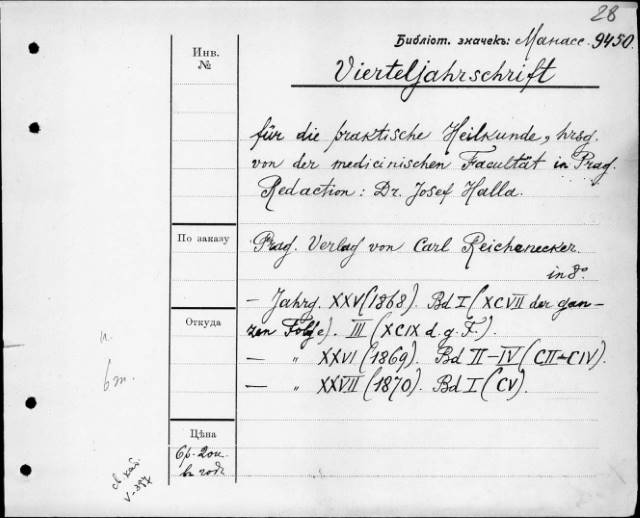 28
Библіот. значекъ: Манасс. 9450.
Инв.
№
Vierteljahrschrift
für die praktische Heilkunde, hrsg.
von der medicinischen Facultät in Prag.
Redaction: Dr. Josef Halla.
По заказу
Prag. Verlag von Carl Reichenecker.
in 8°
— Jahrg. XXV (1868). Bd I (XCVII der gan-
Откуда
zen Folge). III (XCIX d. g. F.).
— „ XXVI (1869). Bd II–IV (CII–CIV).
— „ XXVII (1870). Bd I (CV).
6 т.
Цѣна
6р. 20к.
въ годъ